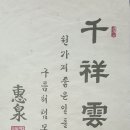 千祥雲
천가지 좋은 일들
구름처럼 모
惠泉